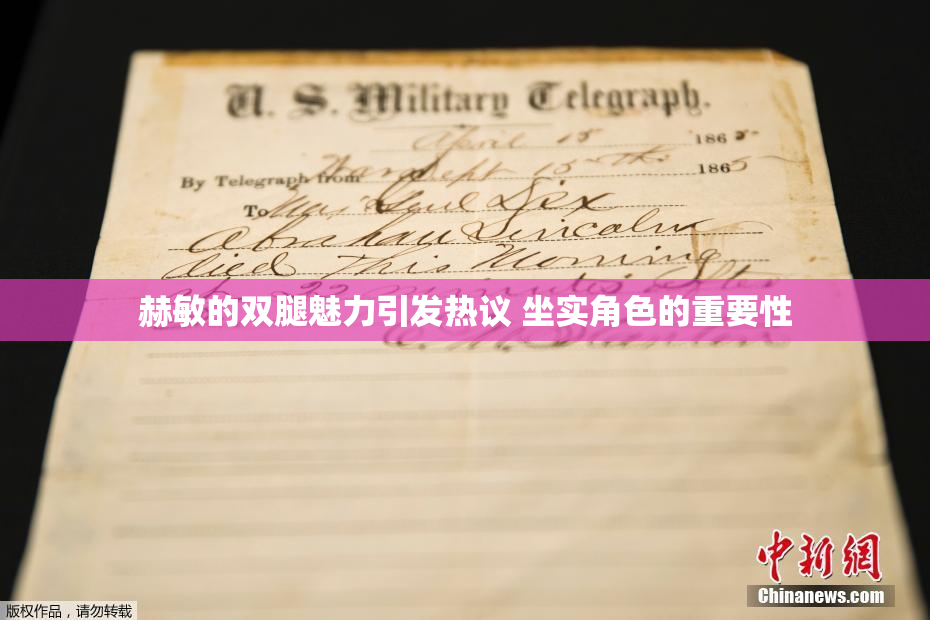 U. S. Military Telegraph.
April 15 1865
By Telegraph from War Dept 15th 1865
To Maj Genl Dix
Abraham Lincoln
died This Morning
at 22 minutes after
赫敏的双腿魅力引发热议 坐实角色的重要性
E. M. Stanton
中新网
Chinanews.com
版权作品，请勿转载